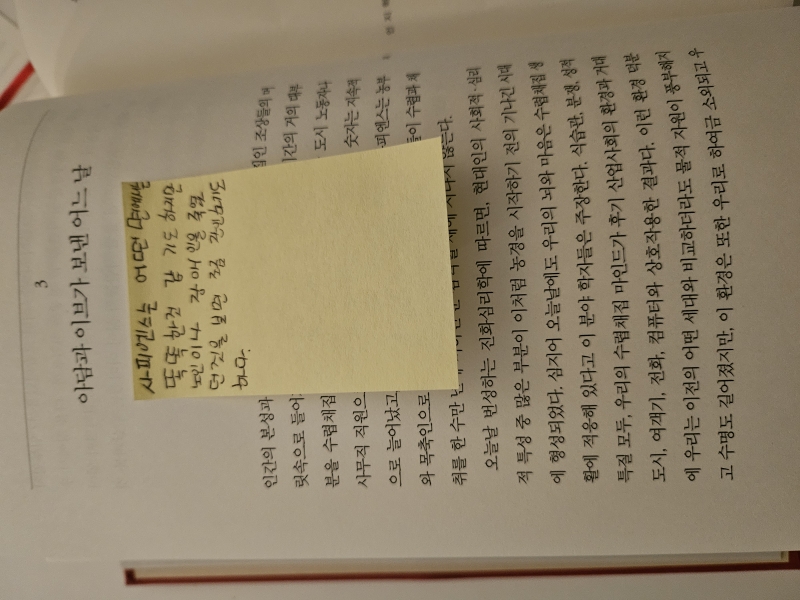 3
아담과 이브가 보낸 어느 날
사피엔스는 어떤 면에서는
똑똑한것 같 기도 하지만
노인이나 장애인을 죽였
던것을 보면 조금 잔인하기도
하다.
인간의 본성과 조상들의
릿속으로 들어 시간의 거의 대부
분을 수렵채집 도시 노동자나
사무직 직원으 숫자는 지속적
으로 늘어났고 피엔스는 농부
와 목축인으로 들이 수렵과 채
취를 한 수만 않는다.
오늘날 번성하는 진화심리학에 따르면, 현대인의 사회적·심리
적 특성 중 많은 부분이 이처럼 농경을 시작하기 전의 기나긴 시대
에 형성되었다. 심지어 오늘날에도 우리의 뇌와 마음은 수렵채집 생
활에 적응해 있다고 이 분야 학자들은 주장한다. 식습관, 분쟁, 성적
특질 모두, 우리의 수렵채집 마인드가 후기 산업사회의 환경과 거대
도시, 여객기, 전화, 컴퓨터와 상호작용한 결과다. 이런 환경 덕분
에 우리는 이전의 어떤 세대와 비교하더라도 물적 자원이 풍부해지
고 수명도 길어졌지만, 이 환경은 또한 우리로 하여금 소외되고 우